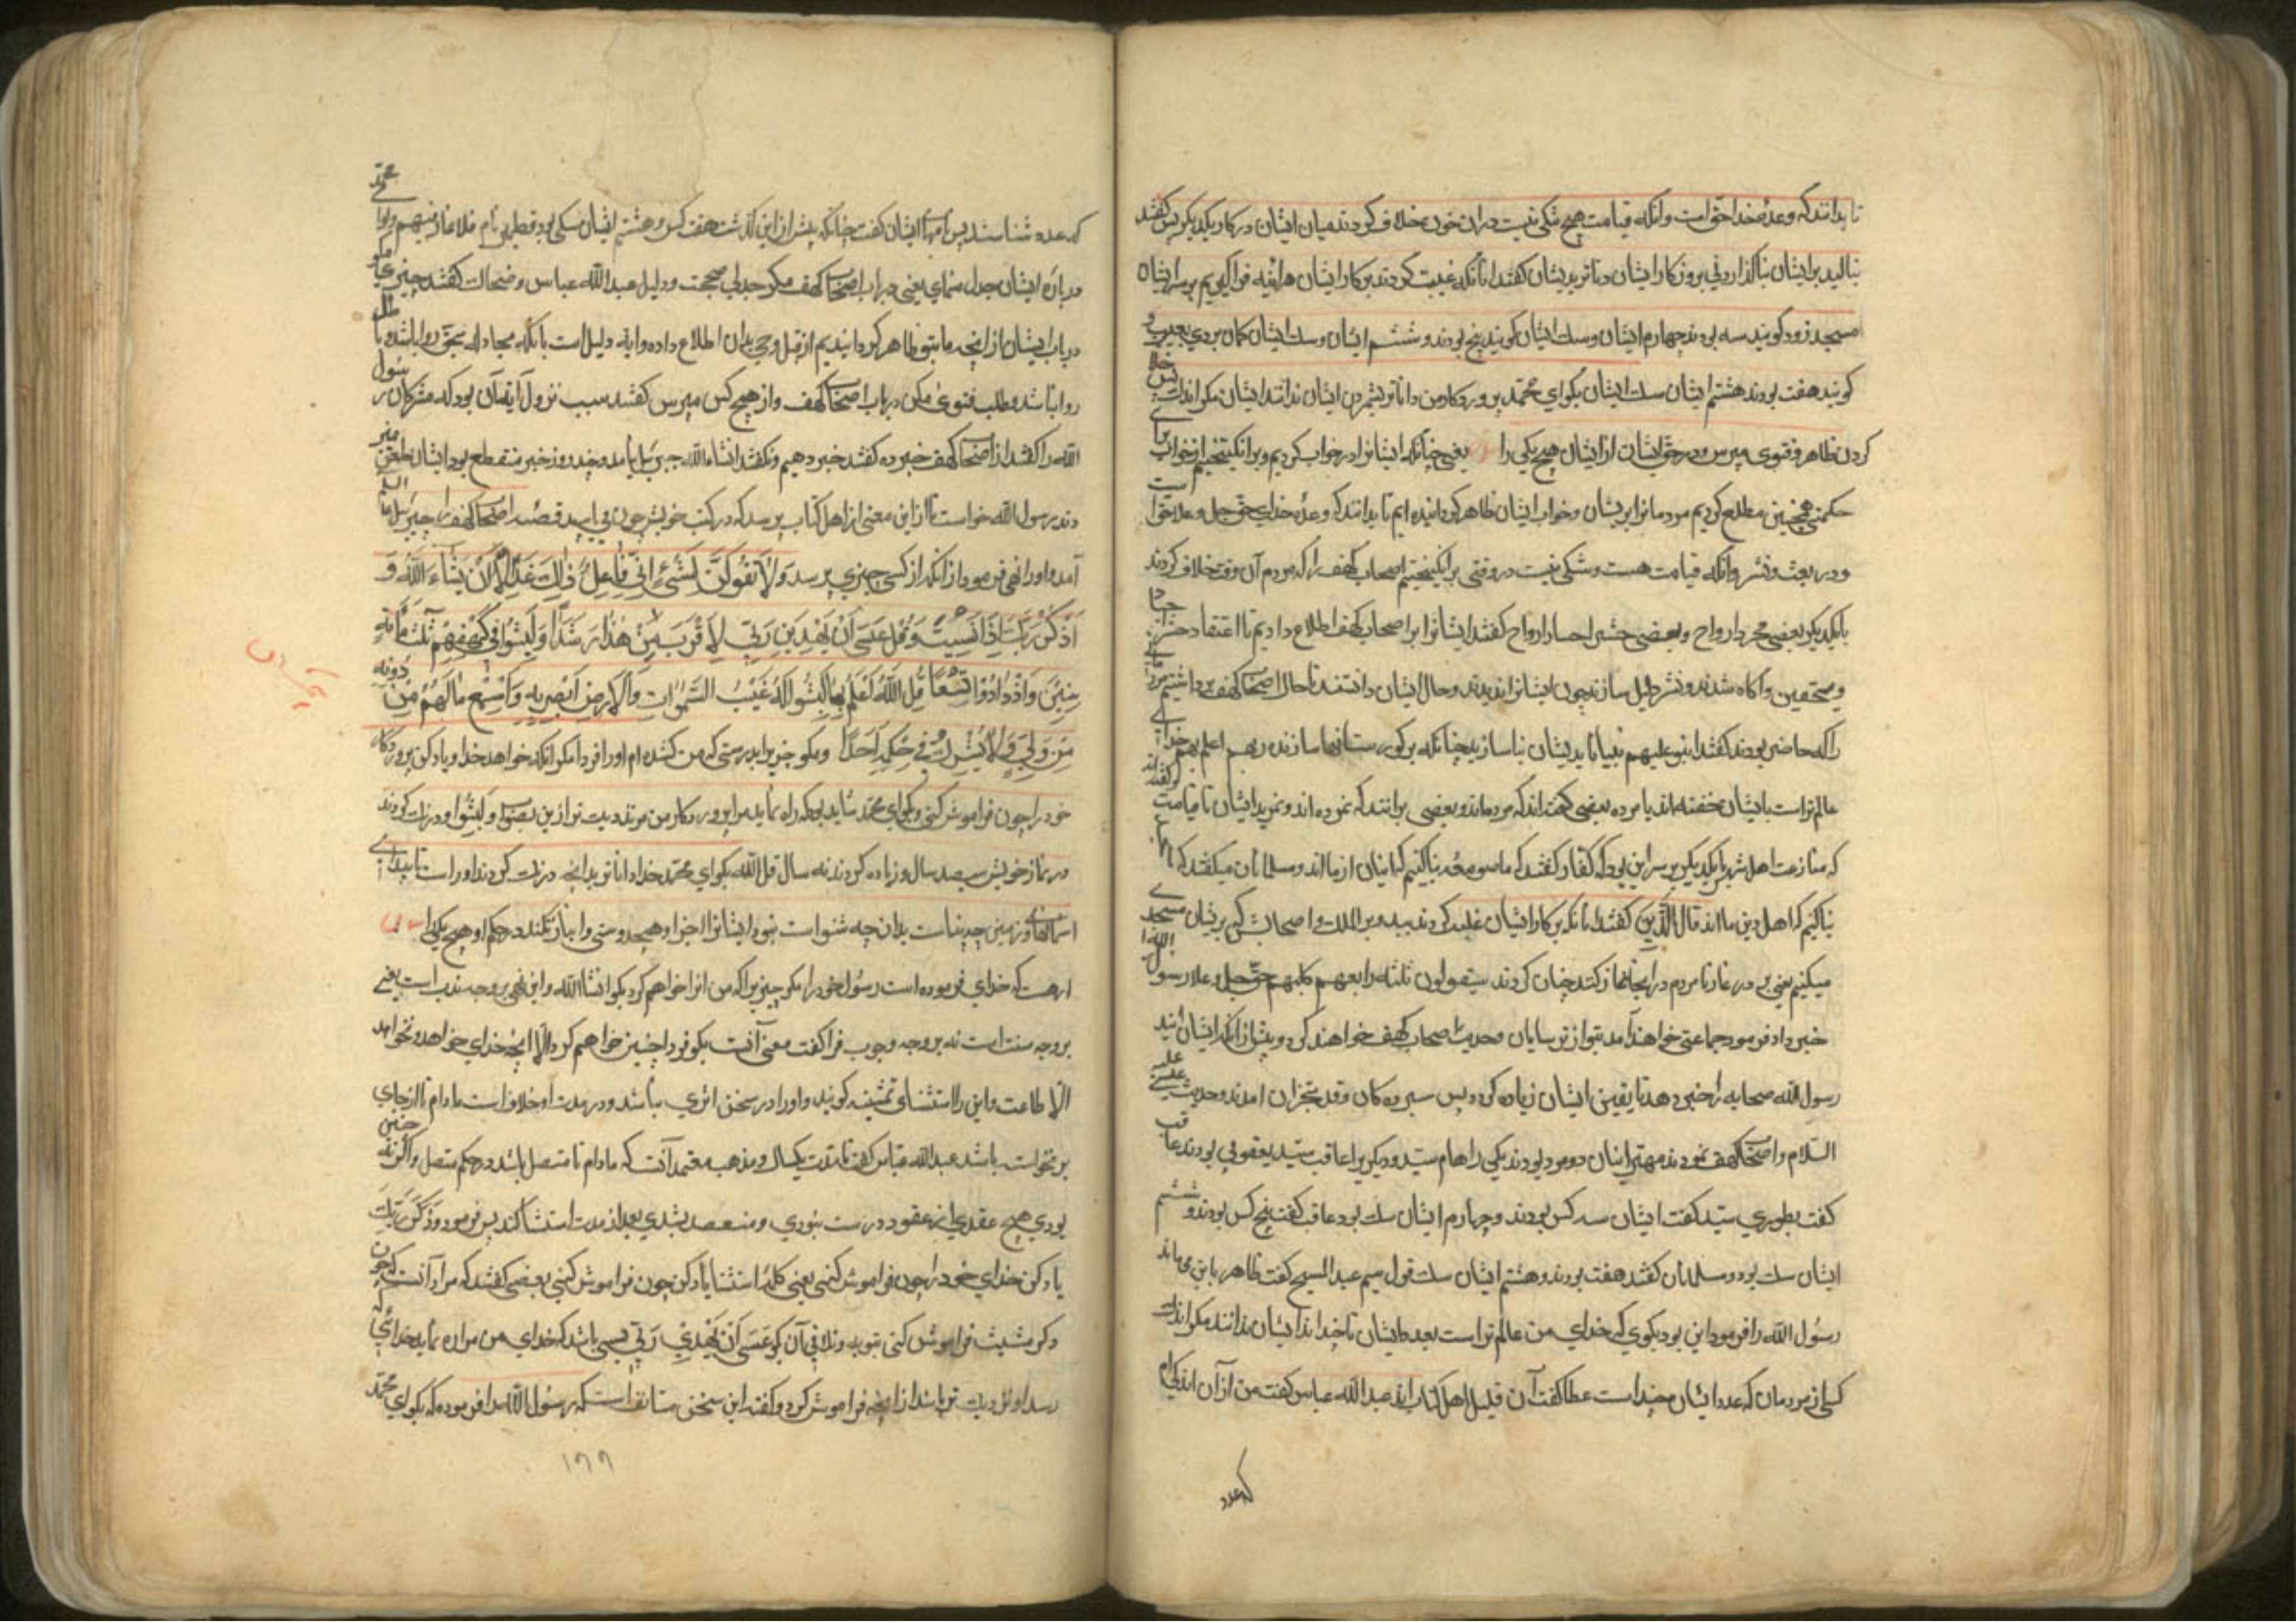 تا بدانند که وعده خدا حق است و آنکه قیامت هیچ شکی نیست در ان چون خلاف کردند میان ایشان در کار یکدیگر پس گفتند
بر ایشان بروزکار ایشان داناتر بدیشان گفتند آنانکه غلبت کردند بر کار ایشان هر آینه فرا گیریم بر سر ایشان
مسجد زود کویند سه بودند چهارم ایشان و سک ایشان کویند پنج بودند و ششم ایشان و سک ایشان کمان بردی بغیب و
کویند هفت بودند هشتم ایشان سک ایشان بکو ای محمد پروردکار من داناتر بشمردن ایشان ندانند ایشان مکر اندک پس
کردن ظاهر و فتوی مپرس در حق ایشان از ایشان هیچ یکی را یعنی چنانکه ایشانرا در خواب کردیم و برانکیختیم از خواب برای
حکمتی همچنین مطلع کردیم مردمانرا بر یشان و خواب ایشان ظاهر کردانیده ایم تا بدانند که وعده خدای حق جل و علا حق است
و در بعث و نشر و آنکه قیامت هست و شکی نیست در وقتی برانکیختیم اصحاب کهف را که مردم آن وقت خلاف کردند
با یکدیکر بعضی مجرد ارواح و بعضی حشر اجساد ارواح گفتند ایشانرا بر اصحاب کهف اطلاع دادیم تا اعتقاد
و متحقین و آکاه شدند و نشر دلیل سازند چون ایشانرا بدیدند و حال ایشان دانستند تا حال اصحاب کهف برداشتیم
را که حاضر بودند گفتند ابنوا علیهم بنیانا بدیشان بنا سازید چنانکه بر کورستانها سازند ربهم اعلم بهم خدای
عالم تراست بایشان خفته اند یا مرده بعضی گفته اند که مرده اند و بعضی برانند که نمرده اند و نمیرند ایشان تا قیامت
که منازعت اهل شهر با یکدیکر بر سر این بود که کفار گفتند که ما صومعه بنا کنیم که اینان از ما اند و مسلمانان میگفتند که ما
بنا کنیم که اهل دین ما اند قال الذین گفتند آنانکه بر کار ایشان غلبه کردند و اصحابش که بریشان مسجد
میکنیم یعنی بر در غار تا مردم در آنجا نماز کنند چنان کردند سیقولون ثلثة رابعهم کلبهم حق جل و علا رسول الله را
خبر داد فرمود جماعتی خواهند آمد بتو از ترسایان و حدیث اصحاب کهف خواهند کرد و پیش از آنکه ایشان آیند
رسول الله صحابه را خبر دهد تا یقین ایشان زیاده کردد پس سیزده کان وفد نجران امدند و حدیث عیسی علیه
السلام و اصحاب کهف نمودند مهتر اینان دو مرد بودند یکی را نام سید و دیکر را عاقب سید یعقوبی بودند عاقب
گفت نسطوری سید گفت ایشان سه کس بودند و چهارم ایشان سک بود عاقب گفت پنج کس بودند و ششم
ایشان سک بود و مسلمانان گفتند هفت بودند و هشتم ایشان سک قول سیم عبدالمسیح گفت ظاهر با این می ماند
رسول الله را فرمود این بود بکوی که خدای من عالم تراست بعدد ایشان تا چند اند ایشان ندانند مکر اندک
کسی از مردمان که عدد ایشان چند است عطا گفت آن قلیل اهل کتاب اند عبد الله عباس گفت من از آن اندکی ام
که عدد
که عدد شناسند پس ایشان گفت چنانکه پیش از این کذشت هفت کس و هشتم ایشان سکی بود قطمیر نام فلا تمار فیهم و تو ای محمد
در باره ایشان جدل منمای یعنی در باب اصحاب کهف مکر جدلی بحجت و دلیل عبد الله عباس و ضحاک گفتند چنین
در باب ایشان از آنچه ما بتو ظاهر کردانیدیم از قبل وحی بدان اطلاع داده و ایة دلیل است بانکه مجادله بحق روا باشد و باطل
روا نباشد و طلب فتوی مکن در باب اصحاب کهف و از هیچ کس مپرس گفتند سبب نزول آیة آن بود که مشرکان رسول
الله را گفتند از اصحاب کهف خبر ده گفتند خبر دهیم و نکفتند انشاء الله جبرئیل نیامد و چند روز خبر منقطع بود ایشان طعن
زدند رسول الله خواست تا از این معنی از اهل کتاب بپرسد که در کتب خویش چون می یابید قصه اصحاب کهف را جبرئیل علیه السلام
آمد و او را نهی فرمود از آنکه از کسی چیزی پرسد وَلَا تَقُولَنَّ لِشَیْءٍ اِنِّی فَاعِلٌ ذٰلِکَ غَدًا اِلَّا اَنْ یَشَاءَ اللّٰهُ وَ
اذْکُرْ رَبَّکَ اِذَا نَسِیتَ وَقُلْ عَسَی اَنْ یَهْدِیَنِ رَبِّی لِاَقْرَبَ مِنْ هٰذَا رَشَدًا وَلَبِثُوا فِی کَهْفِهِمْ ثَلٰثَ مِائَةٍ
سِنِینَ وَازْدَادُوا تِسْعًا قُلِ اللّٰهُ اَعْلَمُ بِمَا لَبِثُوا لَهُ غَیْبُ السَّمٰوَاتِ وَالْاَرْضِ اَبْصِرْ بِهِ وَاَسْمِعْ مَا لَهُمْ مِنْ دُونِهِ
مِنْ وَلِیٍّ وَلَا یُشْرِکُ فِی حُکْمِهِ اَحَدًا و مکو چیزیرا بدرستی که من کننده ام او را فردا مکر آنکه خواهد خدا و یاد کن پروردکار
خود را چون فراموش کنی و بکو ای محمد شاید بود که راه نماید مرا پروردکار من مر نزدیک تر از این بصواب و لبثوا و درنک کردند
در غار خویش سیصد سال و زیاده کردند نه سال قل الله بکو ای محمد خدا داناتر بدانچه درنک کردند او راست
اسمانها و زمین چه بیناست بدان چه شنواست نبود ایشانرا جز او هیچ دوستی و انباز نکند در حکم او هیچ یکی را
که خدای فرموده است رسول خود را مکو چیزیرا که من آنرا خواهم کرد بکو انشاالله و این نهی بر وجه ندب است یعنی
بر وجه سنت است نه بر وجه وجوب فرا گفت معنی آنست بکو فردا چنین خواهم کرد الا آنچه خدای خواهد و نخواهد
الا طاعت و این را استثنای کویند و او را در سخن اثری باشد و در مدت او خلاف است مادام تا از جای
بر نخواسته باشد عبد الله عباس گفت تا مدت یکسال و مذهب معتمد آنست که مادام تا متصل باشد در حکم متصل و اکر نه چنین
بودی هیچ عقدی از عقود درست نبودی و منعقد نشدی بعد از مدت استثنا کند پس فرمود وَاذْکُرْ رَبَّکَ
یاد کن خدای خود را چون فراموش کنی یعنی کلمه استثنا یاد کن چون فراموش کنی بعضی گفتند که مراد آنست که چون
ذکر مشیت فراموش کنی بتوبه و تلافی آن کو عَسَی اَنْ یَهْدِیَنِ رَبِّی بسی باشد که خدای من مرا راه نماید
تر باشد از آنچه فراموش کرد و گفتند این سخن مستانف است که رسول الله را فرمود که بکو ای محمد
۱۹۹